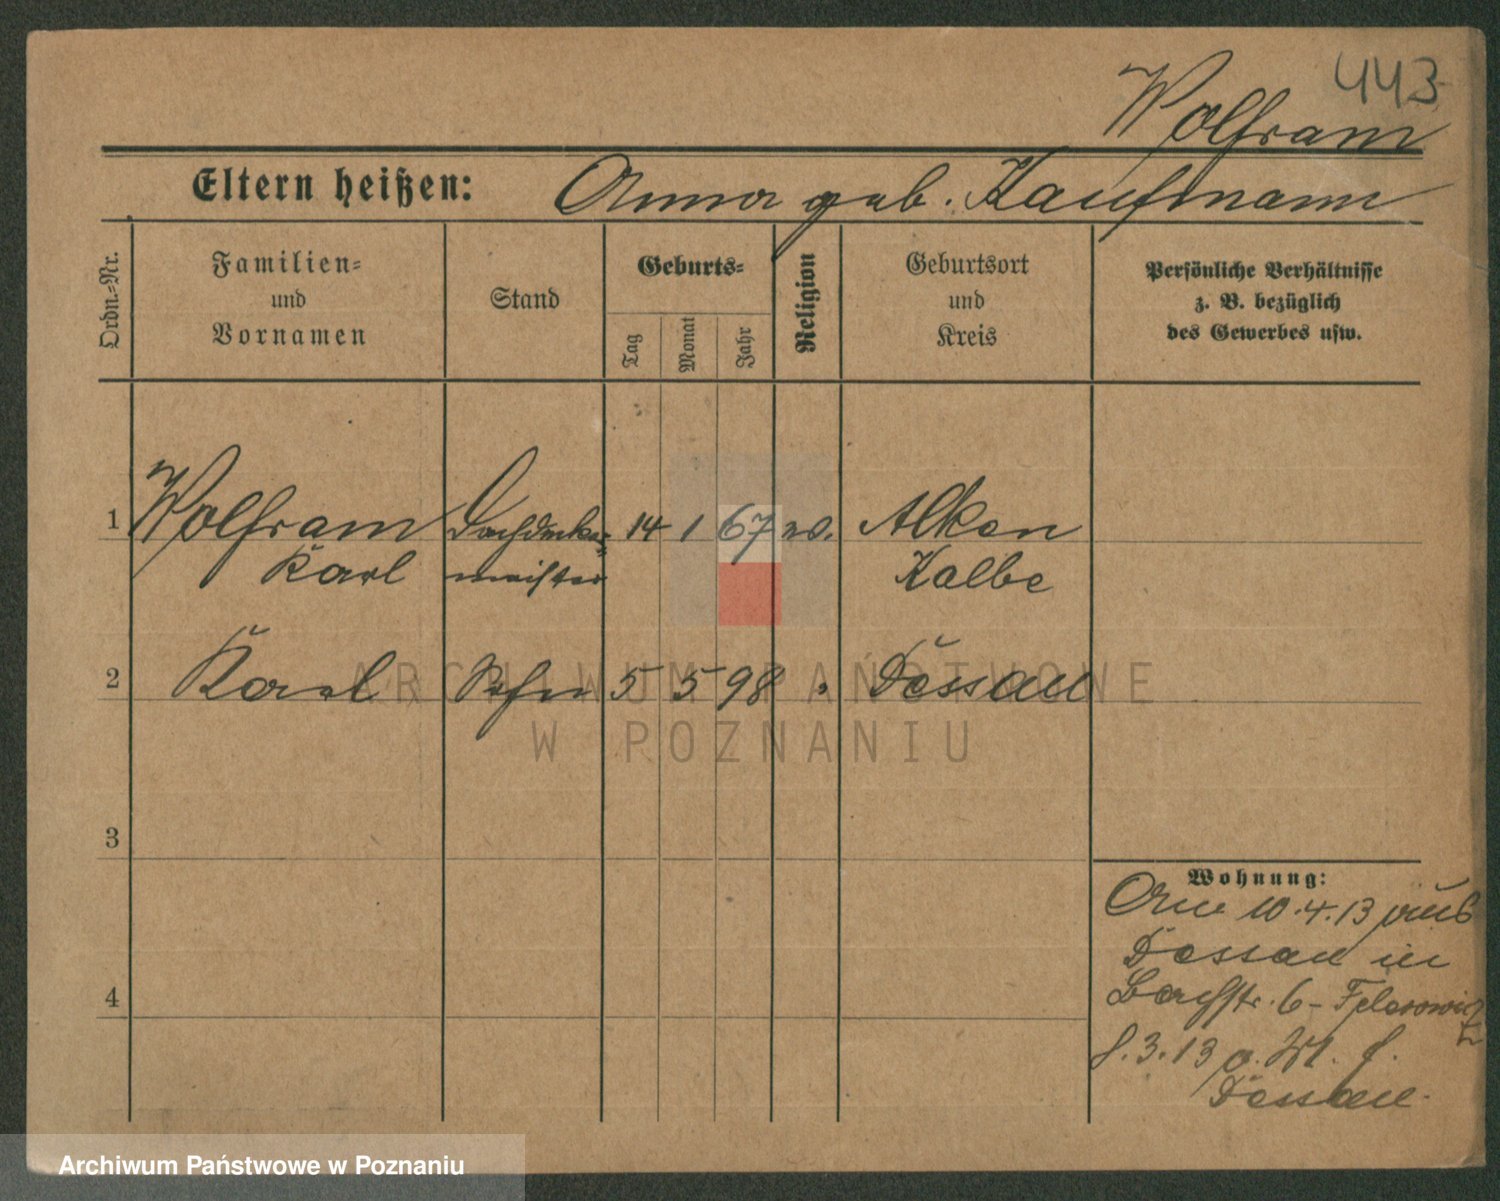 443
Wolfram
Eltern heißen: Anna geb. Kaufmann
Ordn.=Nr.
Familien=
und
Vornamen
Stand
Geburts=
Tag
Monat
Jahr
Religion
Geburtsort
und
Kreis
Persönliche Verhältnisse
z. B. bezüglich
des Gewerbes usw.
1 Wolfram Dachdecker= 14 1 67 ev. Alken
Karl meister Kalbe
2 Karl Sohn 5 5 98 " Dessau
3
4
Wohnung:
Am 10.4.13 aus
Dessau in
Bachstr. 6 -
3.13
Dessau.
ARCHIWUM PAŃSTWOWE
W POZNANIU
Archiwum Państwowe w Poznaniu